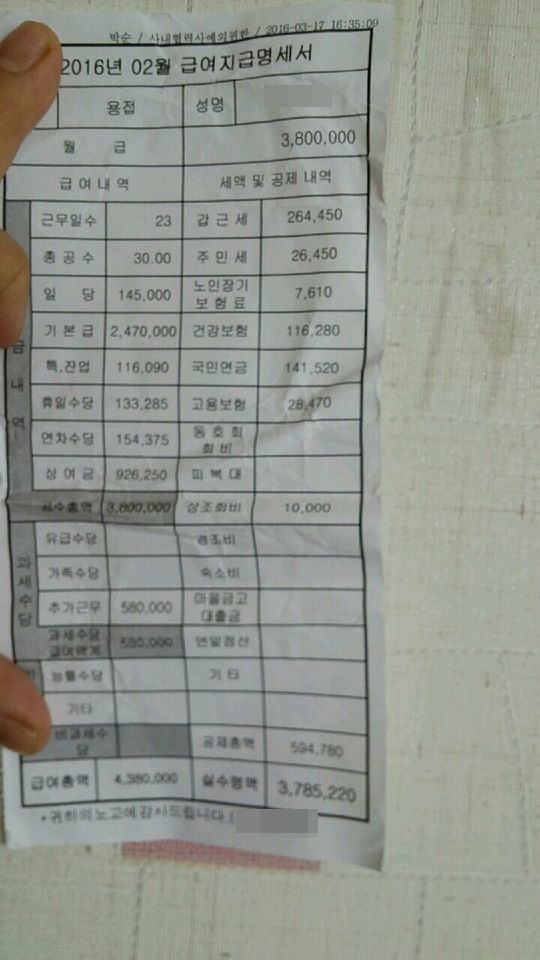 박순 / 사내협력사예외권한 / 2016-03-17 16:35:09
2016년 02월 급여지급명세서
용접 성명
월 급 3,800,000
급여내역 세액 및 공제 내역
근무일수 23 갑근세 264,450
총공수 30.00 주민세 26,450
일 당 145,000 노인장기보험료 7,610
기본급 2,470,000 건강보험 116,280
특.잔업 116,090 국민연금 141,520
휴일수당 133,285 고용보험 28,470
연차수당 154,375 동호회회비
상여금 926,250 피복대
총액 3,800,000 상조회비 10,000
유급수당 경조비
가족수당 숙소비
추가근무 580,000 마을금고대출금
과세수당급여액계 580,000 연말정산
능률수당 기타
기타
비과세수당 공제총액 594,780
급여총액 4,380,000 실수령액 3,785,220
*귀하의노고에감사드립니다.(